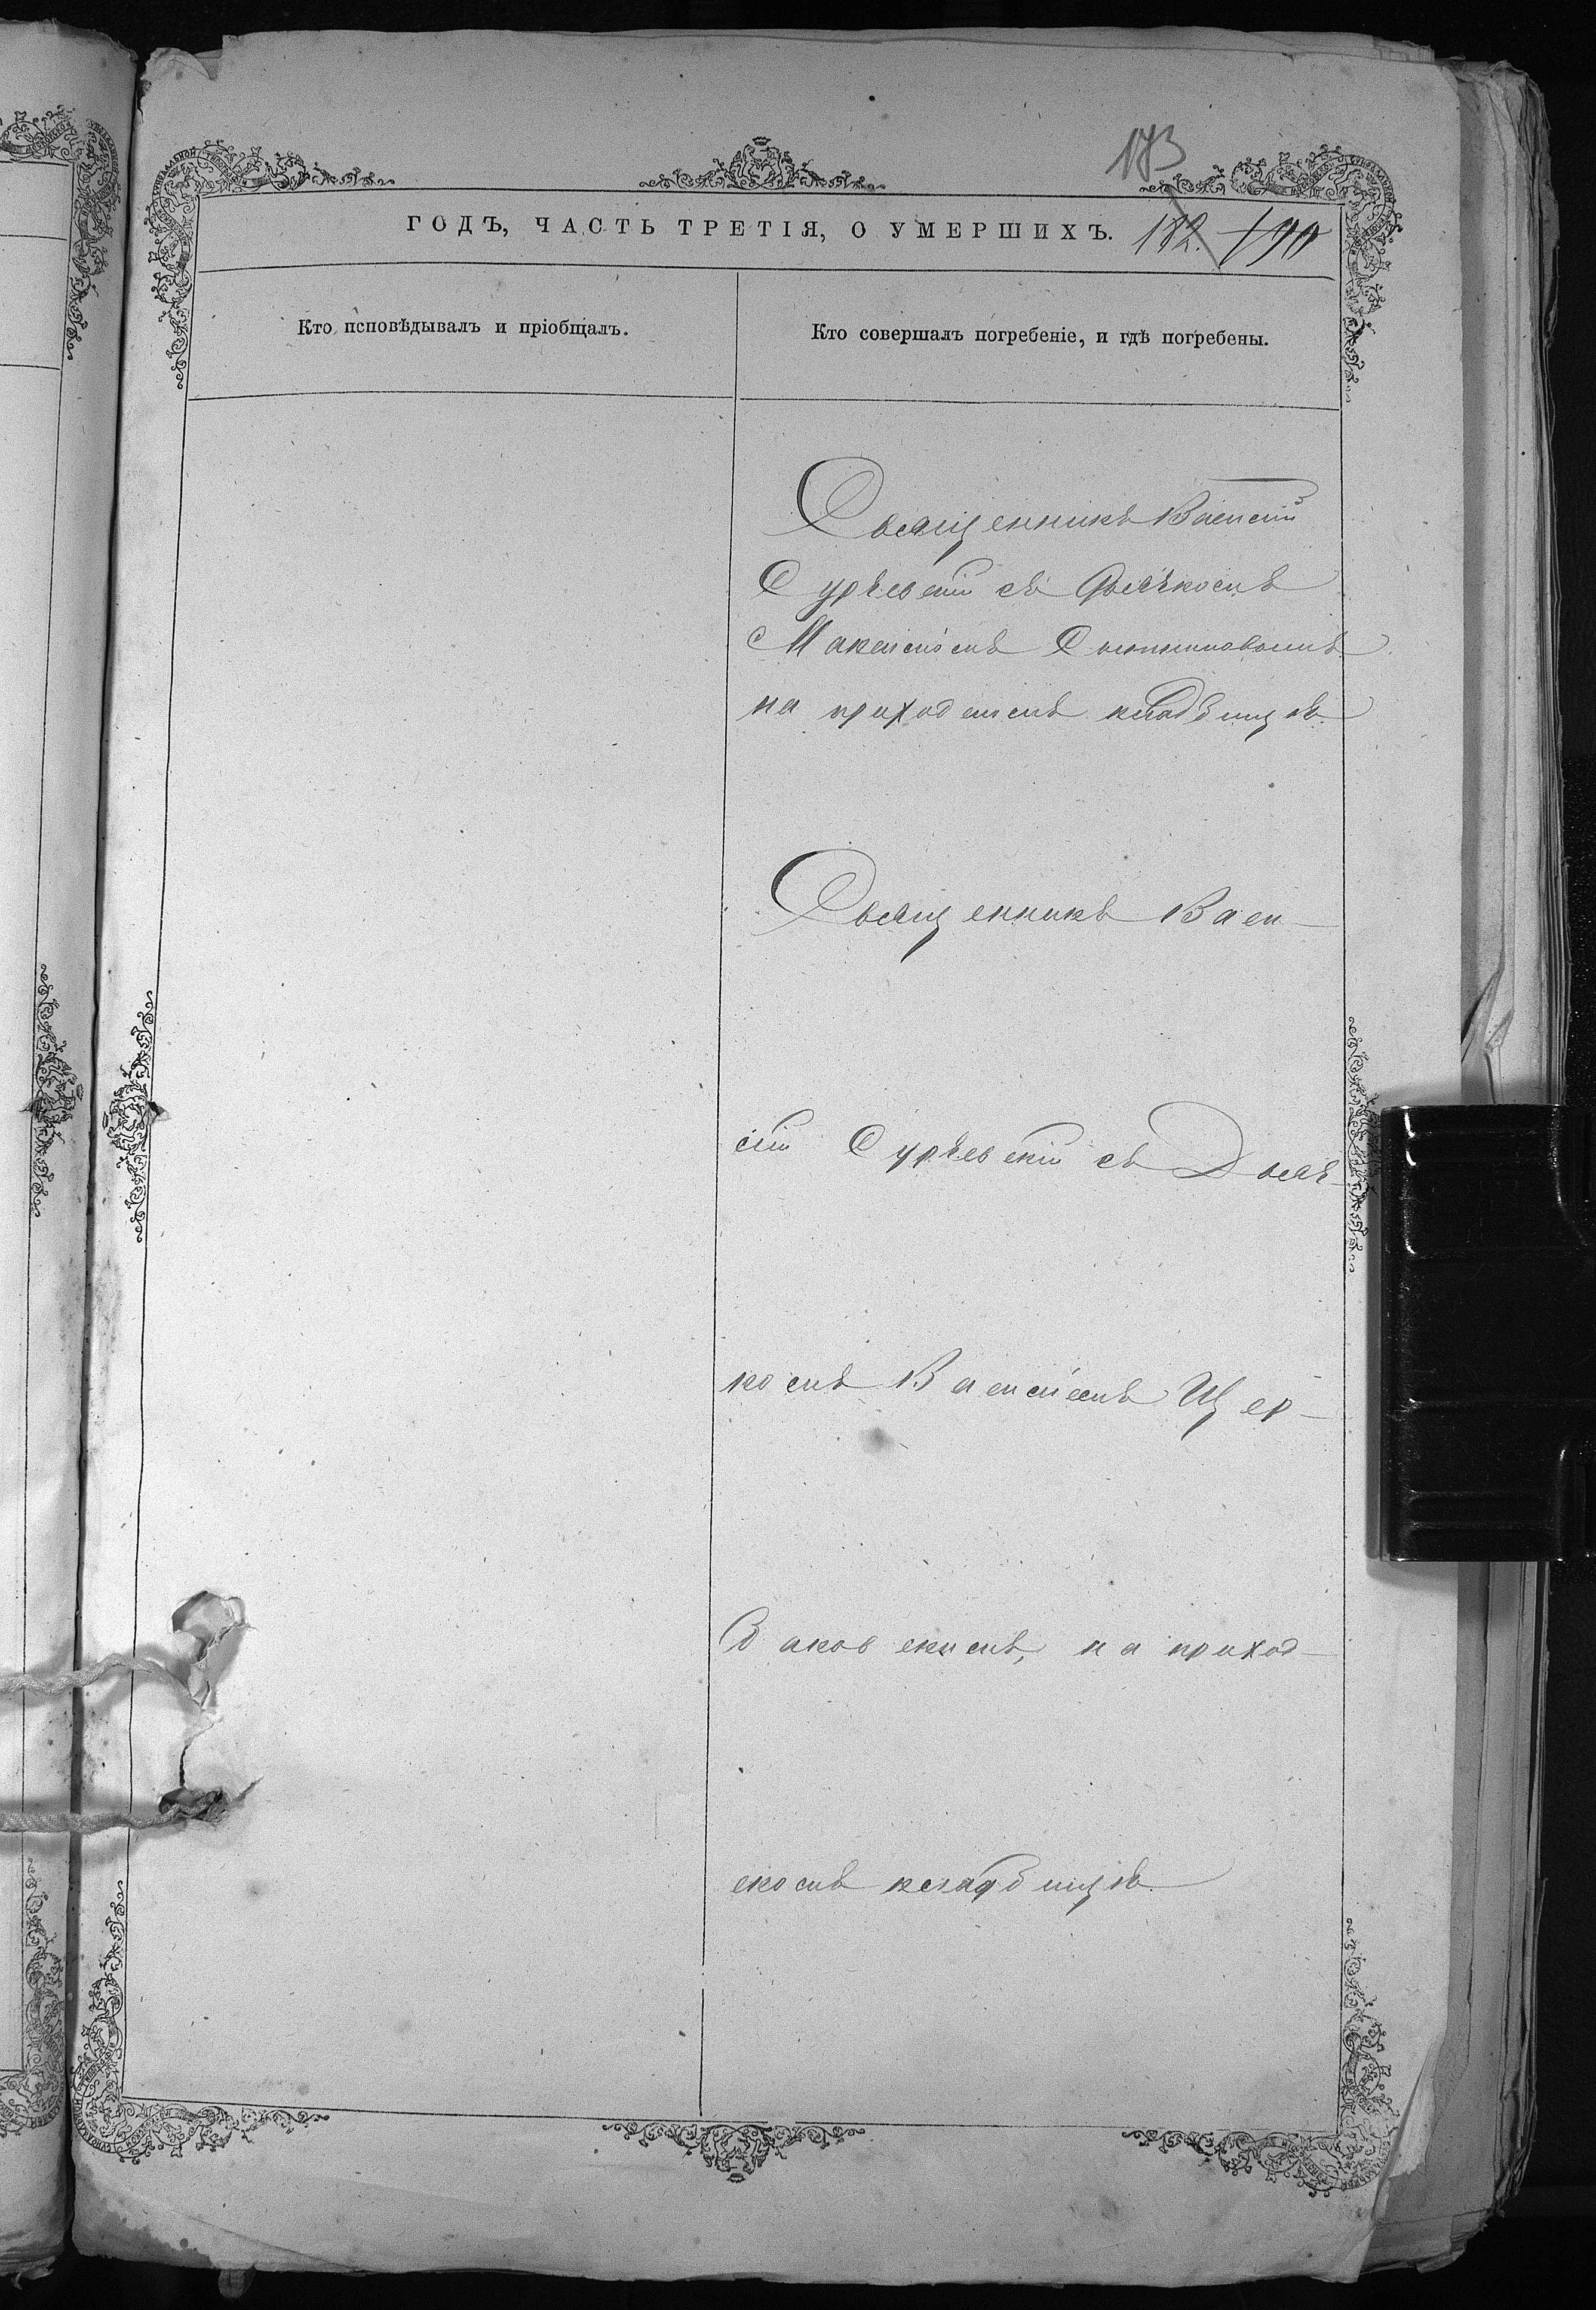 173
ГОДЪ, ЧАСТЬ ТРЕТІЯ, О УМЕРШИХЪ. 182. 190
Кто исповѣдывалъ и пріобщалъ.
Кто совершалъ погребеніе, и гдѣ погребены.
Священникъ Василій
Сурѣвскій съ Дьячкомъ
Максимомъ
на приходскомъ кладбищѣ
Священникъ Васи-
лій Сурѣвскій съ Дьяч-
комъ Василіемъ Щер-
баковскимъ, на приход-
скомъ кладбищѣ.